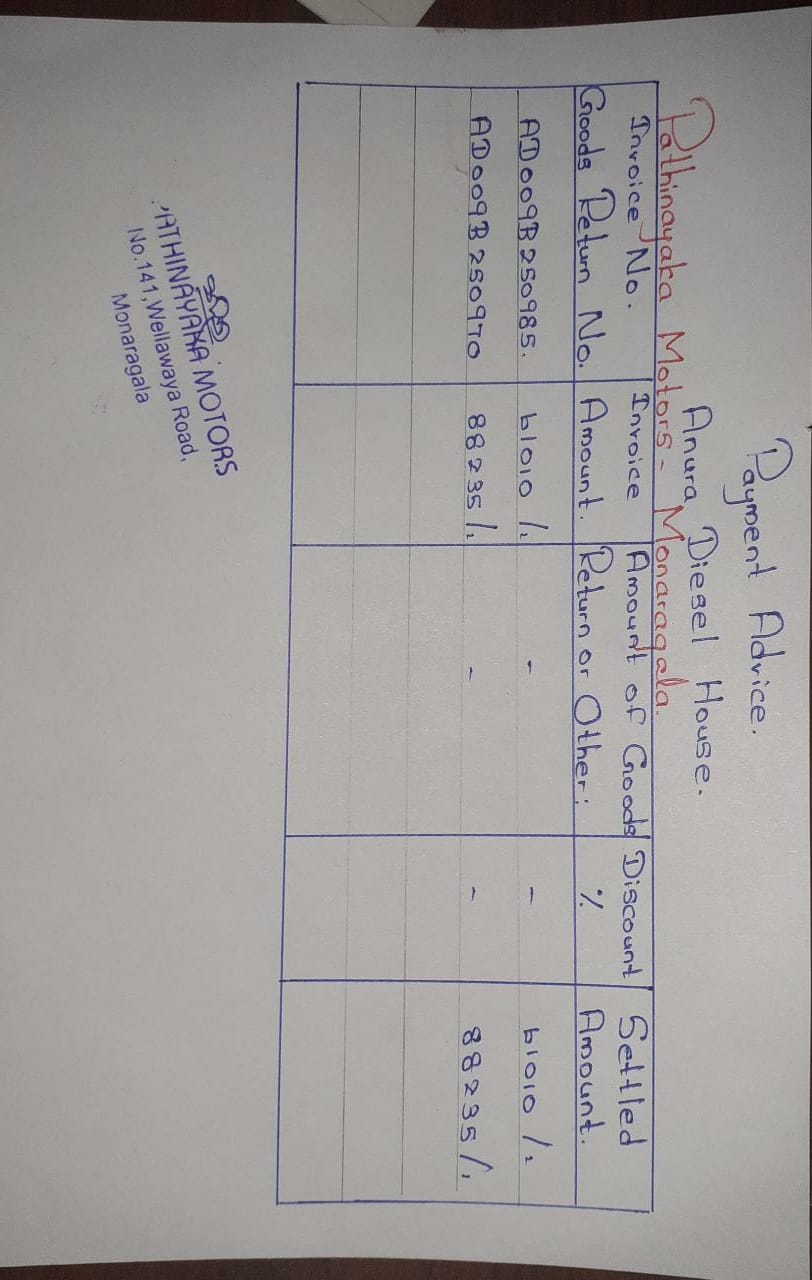 Payment Advice.
Anura Diesel House.
Pathinayaka Motors - Monaragala.
Invoice No. Invoice Amount of Goods Discount Settled
Goods Return No. Amount. Return or Other: % Amount.
AD009B250985. 61010/= - - 61010/=
AD009B250970 88235/= - - 88235/=
PATHINAYAKA MOTORS
No.141, Wellawaya Road,
Monaragala